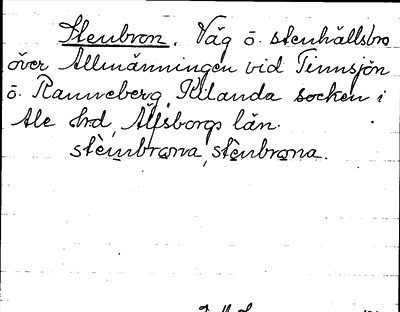 Stenbron. Väg ö. stenhällsbro
över Allmänningen vid Tinnsjön
ö. Ranneberg, Kilanda socken i
Ale hrd, Älfsborgs län.
stèmbrọna, stènbrọna.